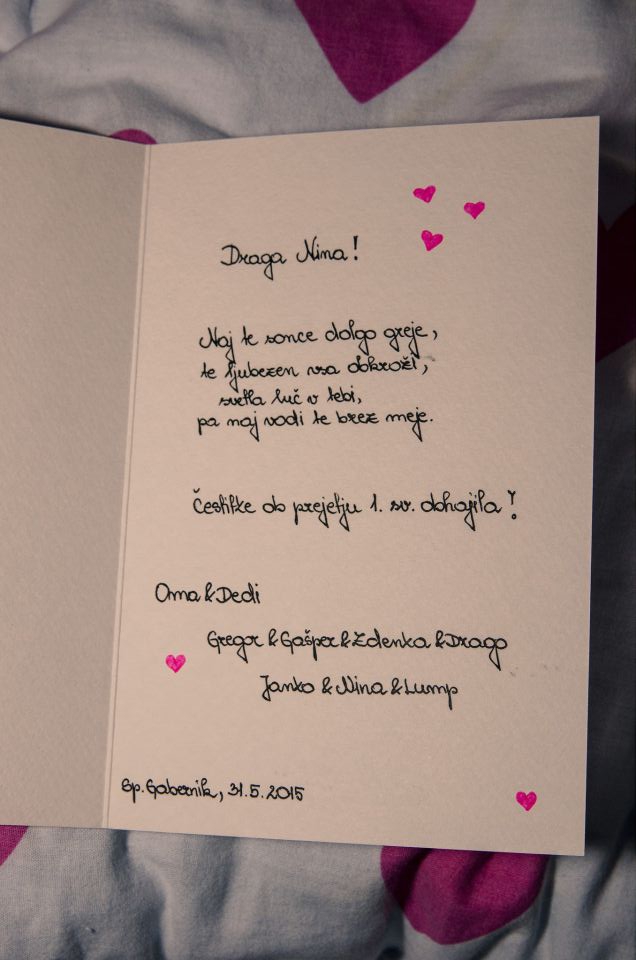 Draga Nina!
Naj te sonce dolgo greje,
te ljubezen vsa obkroži,
svetla luč v tebi,
pa naj vodi te brez meje.
Čestitke ob prejetju 1. sv. obhajila!
Oma & Dedi
Gregor & Gašper & Zdenka & Drago
Janko & Nina & Lump
Sp. Gabernik, 31.5.2015